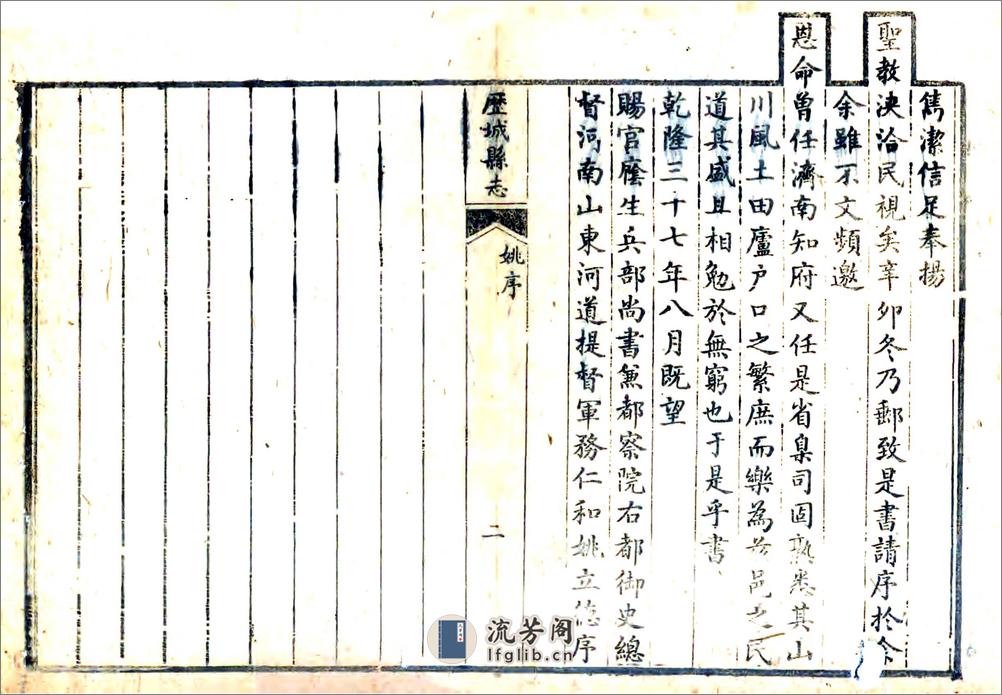 雋潔信足奉揚
聖教浹洽民視矣辛卯冬乃郵致是書請序於余
余雖不文頻邀
恩命曾任濟南知府又任是省臬司固熟悉其山
川風土田廬戶口之繁庶而樂為茲邑之民
道其盛且相勉於無窮也于是乎書
乾隆三十七年八月既望
賜官廕生兵部尚書兼都察院右都御史總
督河南山東河道提督軍務仁和姚立德序
歷城縣志
姚序
二
流芳阁
lfglib.cn